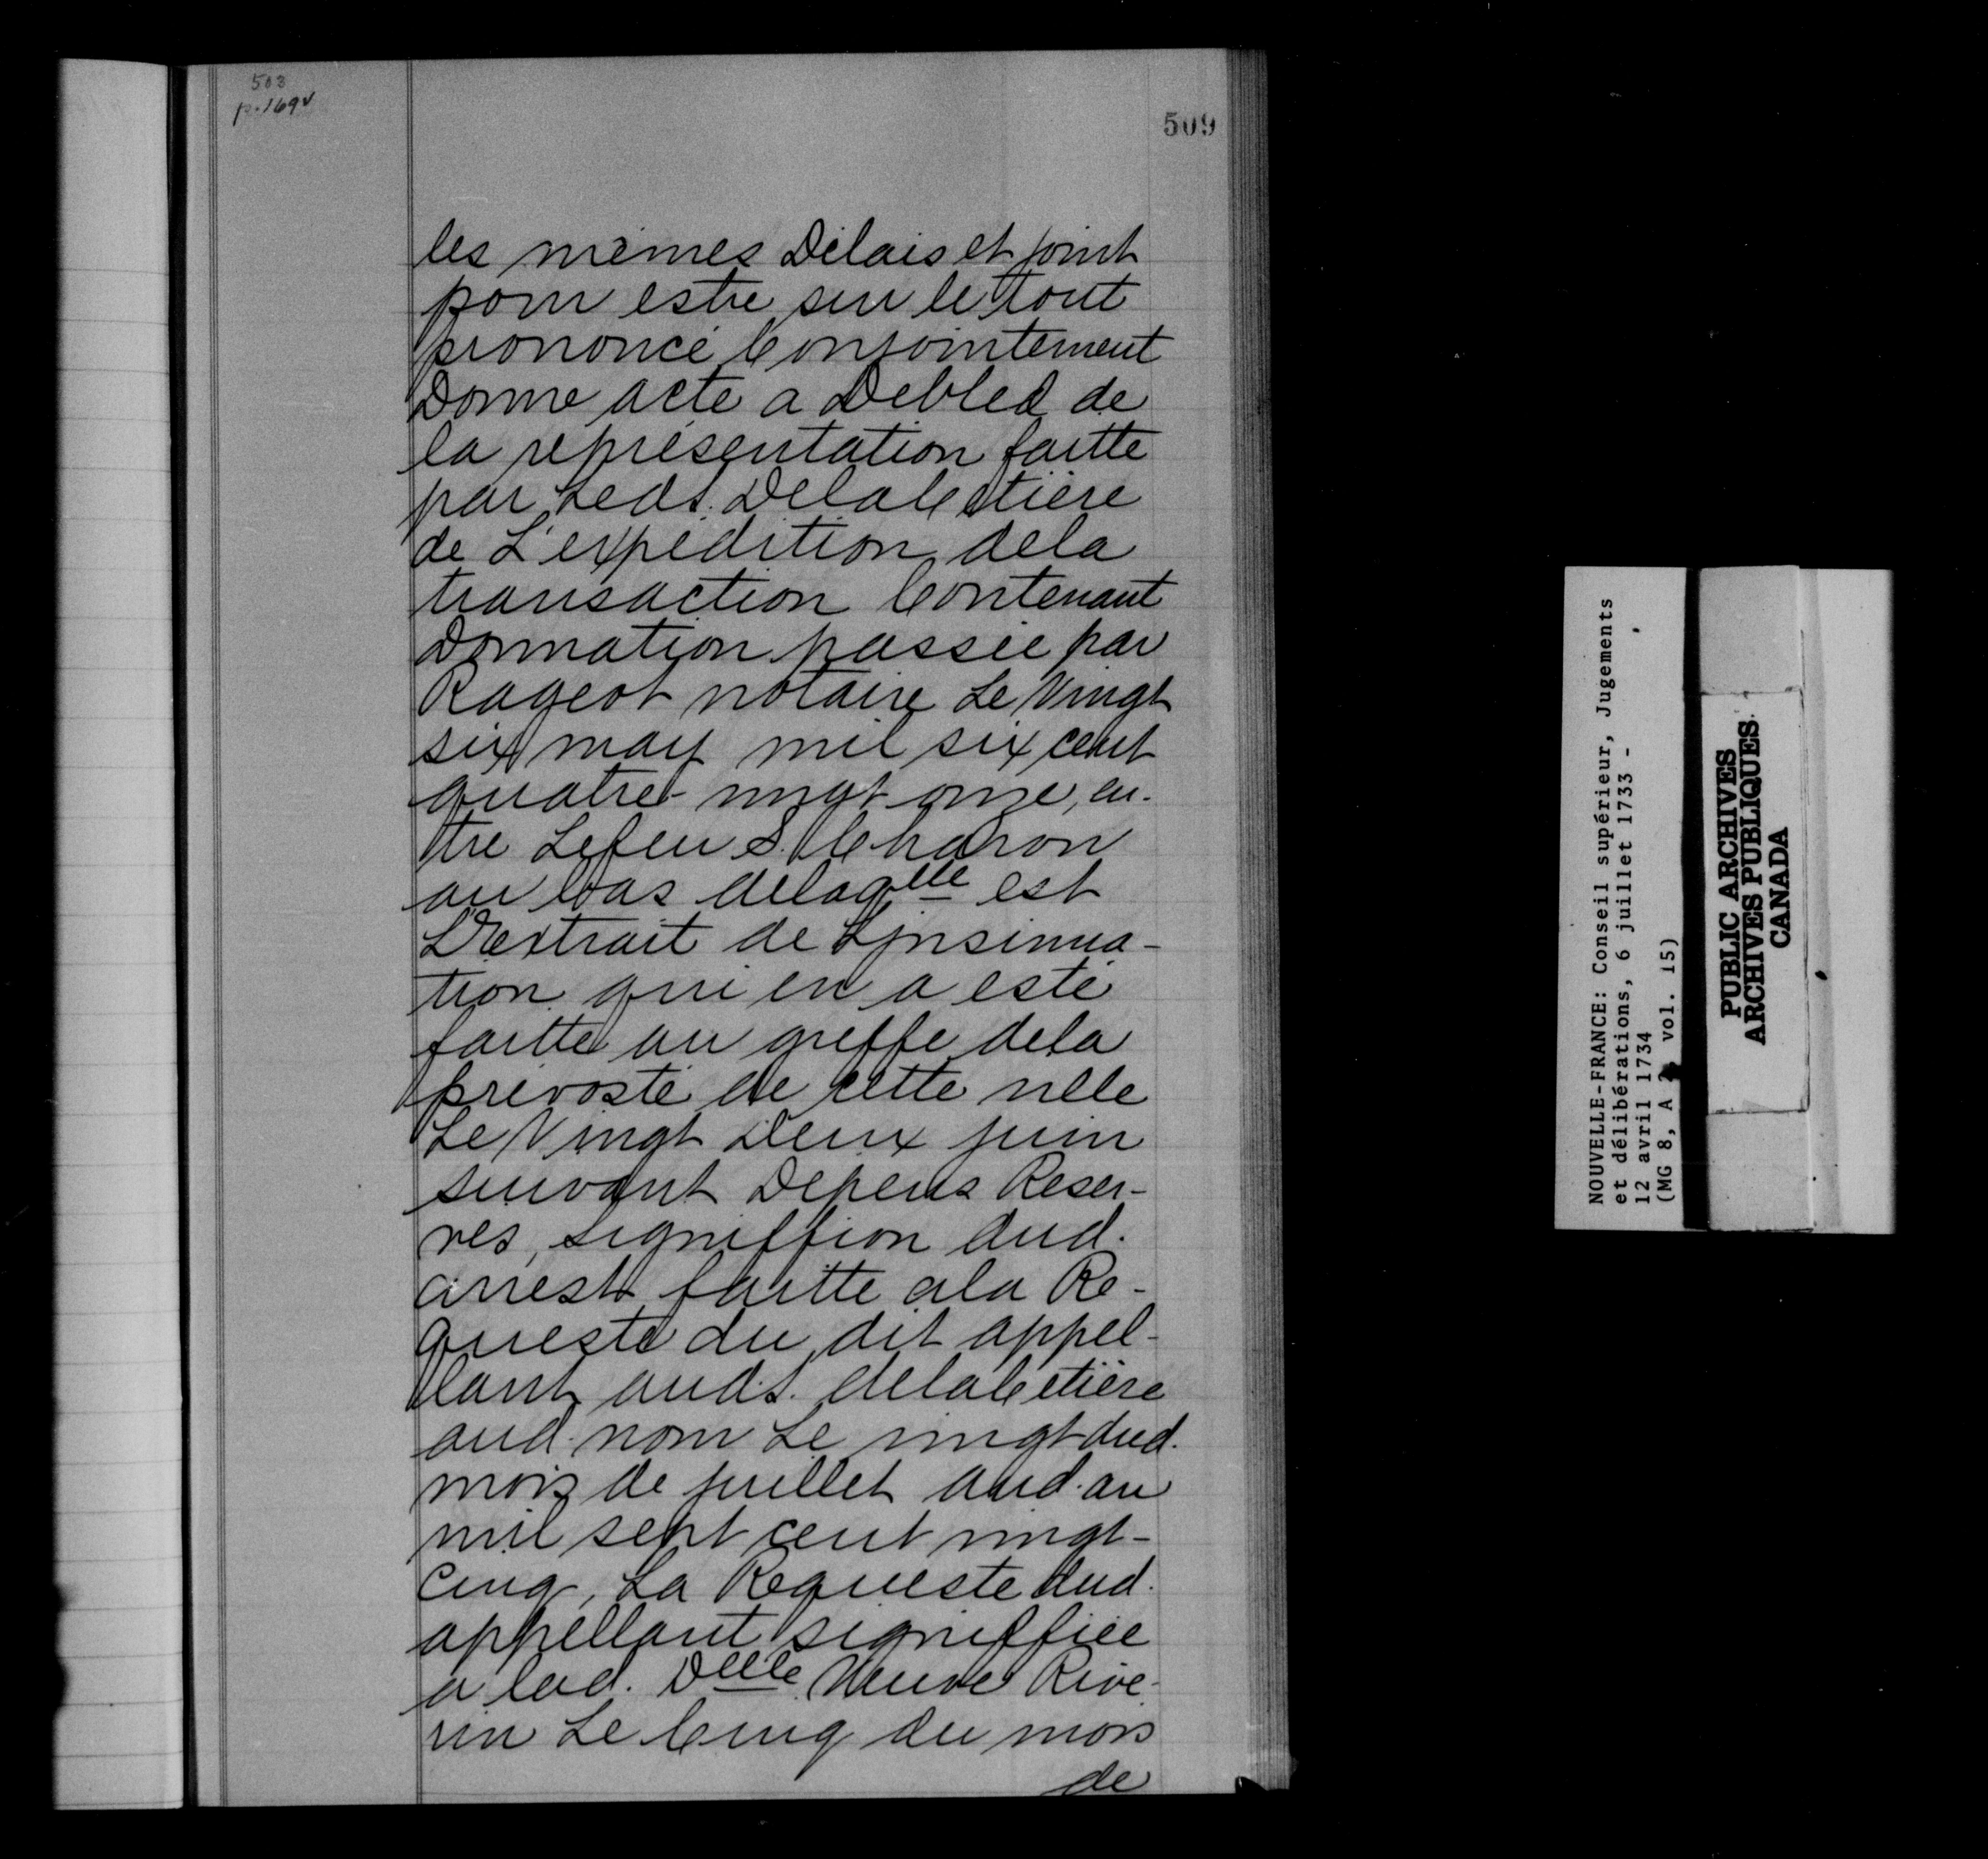 503
p. 169v
509
les mêmes Délais et joint
pour estre sur le tout
prononcé Conjointement
Donne acte a Debled de
la représentation faitte
par Leds. DelaCetière
de L'expédition dela
transaction Contenant
Donnation passée par
Rageot notaire Le Vingt
six may mil six cent
quatre-vingt onze, en-
tre Lefeu S. Charon
au bas delaqlle est
L'Extrait de Linsinua-
tion qui en a esté
faitte au greffe dela
prévosté de cette ville
Le Vingt Deux juin
suivant Dépens Reser-
vés, signiffion dud.
arrest faitte ala Re-
queste du dit appel-
lant auds. delaCetière
aud. nom Le vingt dud.
mois de juillet aud. an
mil sept cent vingt-
cinq, La Requeste dud.
appellant signiffiée
a lad. Delle Veuve Rive-
rin Le Cinq du mois
de
NOUVELLE-FRANCE: Conseil supérieur, Jugements
et délibérations, 6 juillet 1733 -
12 avril 1734
(MG 8, A vol. 15)
PUBLIC ARCHIVES
ARCHIVES PUBLIQUES
CANADA